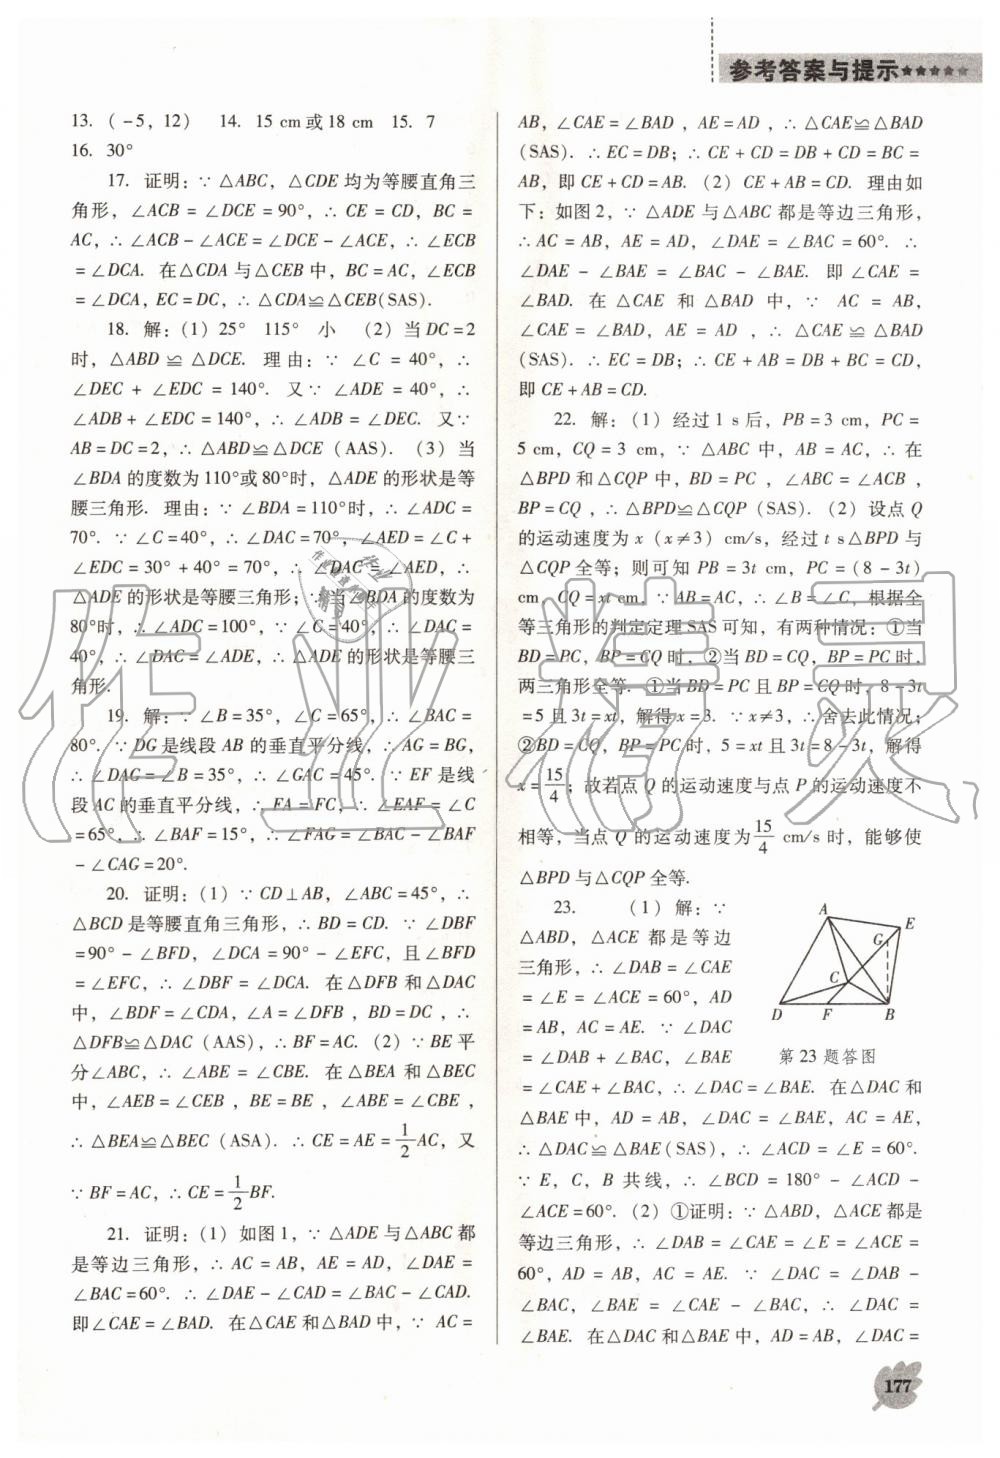 参考答案与提示★★★★★
13. (-5，12)　14. 15 cm或18 cm　15. 7
16. 30°
17. 证明：∵ △ABC，△CDE 均为等腰直角三
角形，∠ACB = ∠DCE = 90°，∴ CE = CD，BC =
AC，∴ ∠ACB - ∠ACE = ∠DCE - ∠ACE，∴ ∠ECB
= ∠DCA. 在△CDA 与△CEB 中，BC = AC，∠ECB
= ∠DCA，EC = DC，∴ △CDA≌△CEB(SAS).
18. 解：(1) 25°　115°　小　(2) 当 DC = 2
时，△ABD ≌ △DCE. 理由：∵ ∠C = 40°，∴
∠DEC + ∠EDC = 140°. 又∵ ∠ADE = 40°，∴
∠ADB + ∠EDC = 140°，∴ ∠ADB = ∠DEC. 又∵
AB = DC = 2，∴ △ABD≌△DCE（AAS）. (3) 当
∠BDA 的度数为110°或80°时，△ADE 的形状是等
腰三角形. 理由：∵ ∠BDA = 110°时，∴ ∠ADC =
70°. ∵ ∠C = 40°，∴ ∠DAC = 70°，∠AED = ∠C +
∠EDC = 30° + 40° = 70°，∴ ∠DAC = ∠AED，∴
△ADE 的形状是等腰三角形；∵当∠BDA 的度数为
80°时，∴ ∠ADC = 100°，∵ ∠C = 40°，∴ ∠DAC =
40°，∴ ∠DAC = ∠ADE，∴ △ADE 的形状是等腰三
角形.
19. 解：∵ ∠B = 35°，∠C = 65°，∴ ∠BAC =
80°. ∵ DG 是线段 AB 的垂直平分线，∴ AG = BG，
∴ ∠DAG = ∠B = 35°，∴ ∠GAC = 45°. ∵ EF 是线
段 AC 的垂直平分线，∴ FA = FC，∴ ∠EAF = ∠C
= 65°，∴ ∠BAF = 15°，∴ ∠FAG = ∠BAC - ∠BAF
- ∠CAG = 20°.
20. 证明：(1) ∵ CD⊥AB，∠ABC = 45°，∴
△BCD 是等腰直角三角形，∴ BD = CD. ∵ ∠DBF
= 90° - ∠BFD，∠DCA = 90° - ∠EFC，且∠BFD
= ∠EFC，∴ ∠DBF = ∠DCA. 在△DFB 和△DAC
中，∠BDF = ∠CDA，∠A = ∠DFB，BD = DC，∴
△DFB≌△DAC（AAS），∴ BF = AC. (2) ∵ BE 平
分∠ABC，∴ ∠ABE = ∠CBE. 在△BEA 和△BEC
中，∠AEB = ∠CEB，BE = BE，∠ABE = ∠CBE，
∴ △BEA≌△BEC（ASA）. ∴ CE = AE = 1/2 AC，又
∵ BF = AC，∴ CE = 1/2 BF.
21. 证明：(1) 如图1，∵ △ADE 与△ABC 都
是等边三角形，∴ AC = AB，AE = AD，∠DAE =
∠BAC = 60°. ∴ ∠DAE - ∠CAD = ∠BAC - ∠CAD.
即∠CAE = ∠BAD. 在△CAE 和△BAD 中，∵ AC =
AB，∠CAE = ∠BAD，AE = AD，∴ △CAE≌△BAD
(SAS). ∴ EC = DB；∴ CE + CD = DB + CD = BC =
AB，即 CE + CD = AB. (2) CE + AB = CD. 理由如
下：如图2，∵ △ADE 与△ABC 都是等边三角形，
∴ AC = AB，AE = AD，∠DAE = ∠BAC = 60°. ∴
∠DAE - ∠BAE = ∠BAC - ∠BAE. 即 ∠CAE =
∠BAD. 在 △CAE 和 △BAD 中，∵ AC = AB，
∠CAE = ∠BAD，AE = AD，∴ △CAE ≌ △BAD
(SAS). ∴ EC = DB；∴ CE + AB = DB + BC = CD，
即 CE + AB = CD.
22. 解：(1) 经过1 s后，PB = 3 cm，PC =
5 cm，CQ = 3 cm，∵ △ABC 中，AB = AC，∴ 在
△BPD 和△CQP 中，BD = PC，∠ABC = ∠ACB，
BP = CQ，∴ △BPD≌△CQP（SAS）. (2) 设点 Q
的运动速度为 x（x≠3）cm/s，经过 t s△BPD 与
△CQP 全等；则可知 PB = 3t cm，PC = (8 - 3t)
cm，CQ = xt cm，∵ AB = AC，∴ ∠B = ∠C，根据全
等三角形的判定定理 SAS 可知，有两种情况：①当
BD = PC，BP = CQ 时，②当 BD = CQ，BP = PC 时，
两三角形全等. ①当 BD = PC 且 BP = CQ 时，8 - 3t
= 5 且 3t = xt，解得 x = 3. ∵ x≠3，∴ 舍去此情况；
②BD = CQ，BP = PC 时，5 = xt 且 3t = 8 - 3t，解得
x = 15/4；故若点 Q 的运动速度与点 P 的运动速度不
相等，当点 Q 的运动速度为 15/4 cm/s 时，能够使
△BPD 与△CQP 全等.
23. (1) 解：∵
△ABD，△ACE 都是等边
三角形，∴ ∠DAB = ∠CAE
= ∠E = ∠ACE = 60°，AD
= AB，AC = AE. ∵ ∠DAC
= ∠DAB + ∠BAC，∠BAE
= ∠CAE + ∠BAC，∴ ∠DAC = ∠BAE. 在△DAC 和
△BAE 中，AD = AB，∠DAC = ∠BAE，AC = AE，
∴ △DAC ≌ △BAE(SAS)，∴ ∠ACD = ∠E = 60°.
∵ E，C，B 共线，∴ ∠BCD = 180° - ∠ACD -
∠ACE = 60°. (2) ①证明：∵ △ABD，△ACE 都是
等边三角形，∴ ∠DAB = ∠CAE = ∠E = ∠ACE =
60°，AD = AB，AC = AE. ∵ ∠DAC = ∠DAB -
∠BAC，∠BAE = ∠CAE - ∠BAC，∴ ∠DAC =
∠BAE. 在△DAC 和△BAE 中，AD = AB，∠DAC =
A
E
G
C
D
F
B
第 23 题答图
177
作业精灵